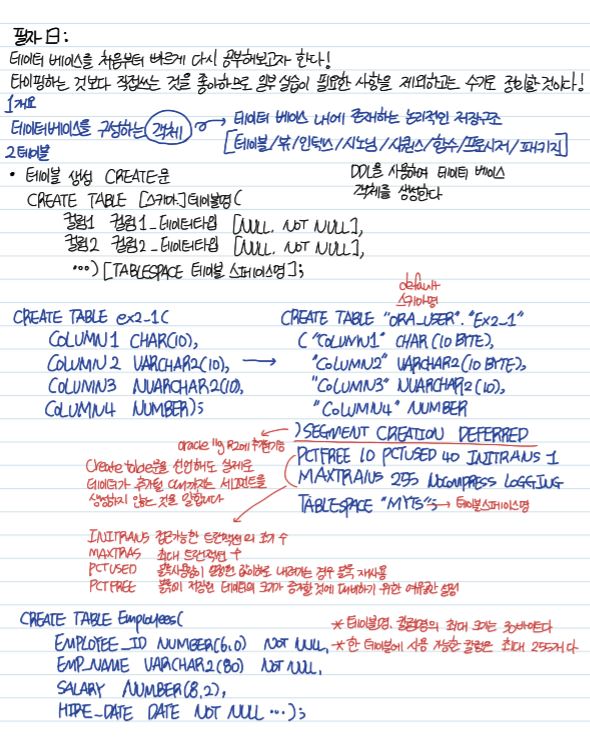 필자 曰:
데이터 베이스를 처음부터 빠르게 다시 공부해보고자 한다!
타이핑하는 것보다 직접쓰는 것을 좋아하므로 일부 실습이 필요한 사항을 제외하고는 수기로 정리할 것이다!
1 개요
데이터베이스를 구성하는 객체 → 데이터 베이스 내에 존재하는 논리적인 저장구조
[테이블/뷰/인덱스/시노님/시퀀스/함수/프로시저/패키지]
2 테이블
• 테이블 생성 CREATE문
DDL을 사용하여 데이터 베이스
객체를 생성한다
CREATE TABLE [스키마.]테이블명(
컬럼1 컬럼1_데이터타입 [NULL, NOT NULL],
컬럼2 컬럼2_데이터타입 [NULL, NOT NULL],
...) [TABLESPACE 테이블 스페이스명];
CREATE TABLE ex2-1(
COLUMN1 CHAR(10),
COLUMN2 VARCHAR2(10), →
COLUMN3 NVARCHAR2(10),
COLUMN4 NUMBER);
default
스키마명
CREATE TABLE "ORA_USER"."Ex2_1"
("COLUMN1" CHAR (10 BYTE),
"COLUMN2" VARCHAR2(10 BYTE),
"COLUMN3" NVARCHAR2(10),
"COLUMN4" NUMBER
) SEGMENT CREATION DEFERRED
PCTFREE 10 PCTUSED 40 INITRANS 1
MAXTRANS 255 NOCOMPRESS LOGGING
TABLESPACE "MYTS"; → 테이블스페이스명
oracle 11g R2에 추가기능
Create table문을 선언해도 실제로
데이터가 추가될 때까지는 세그먼트를
생성하지 않는 것을 말합니다
INITRANS 접근가능한 트랜잭션의 초기 수
MAXTRAS 최대 트랜잭션 수
PCTUSED 블록사용량이 설정한 값이하로 내려가는 경우 블록 재사용
PCTFREE 블록이 저장된 데이터의 크기가 증가할 것에 대비하기 위한 여유공간 설정
CREATE TABLE Employees(
EMPLOYEE_ID NUMBER(6,0) NOT NULL,
EMP_NAME VARCHAR2(80) NOT NULL,
SALARY NUMBER(8,2),
HIRE_DATE DATE NOT NULL ...);
* 테이블명, 컬럼명의 최대 크기는 30바이트다
* 한 테이블에 사용 가능한 컬럼은 최대 255개다